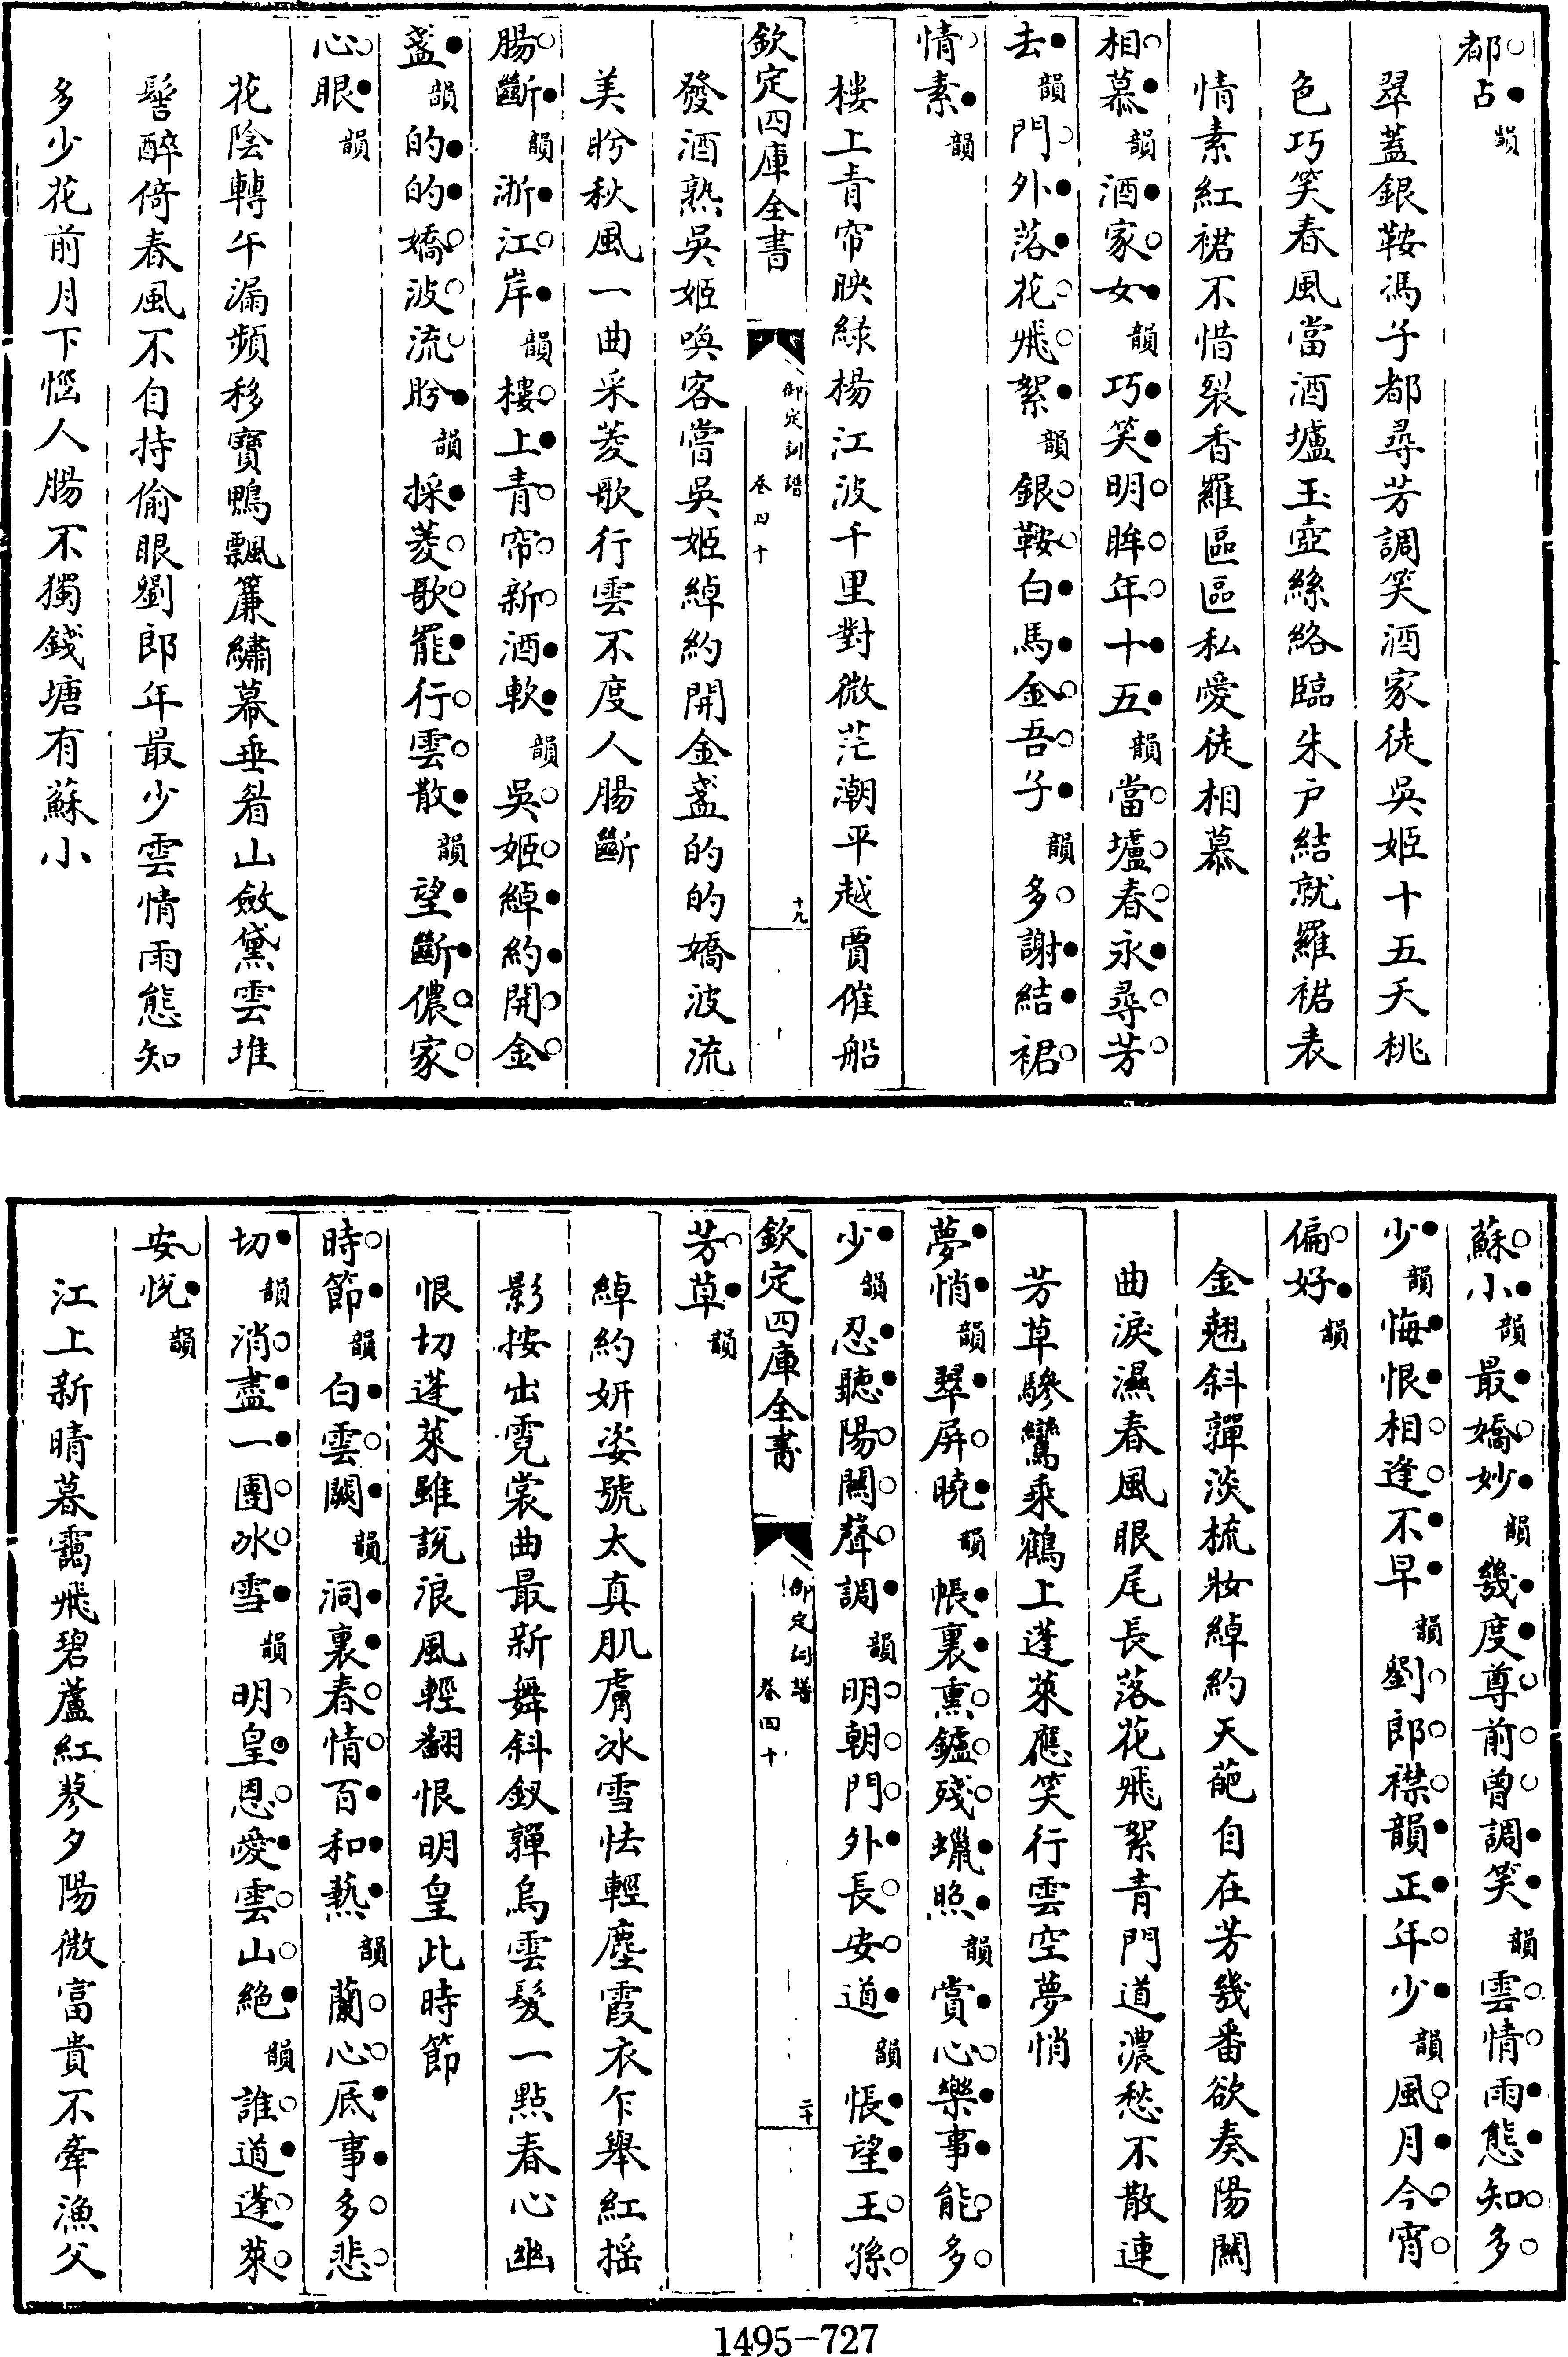 都占韻
翠蓋銀鞍馮子都尋芳調笑酒家徒吳姬十五夭桃
色巧笑春風當酒壚玉壺絲絡臨朱户結就羅裙表
情素紅裙不惜裂香羅區區私愛徒相慕
相慕韻酒家女韻巧笑明眸年十五韻當壚春永尋芳
去韻門外落花飛絮韻銀鞍白馬金吾子韻多謝結裙
情素韻
樓上青帘映綠楊江波千里對微茫潮平越賈催船
欽定四庫全書
御定詞譜
卷四十
十九
發酒熟吳姬喚客嘗吳姬綽約開金盞的的嬌波流
美盼秋風一曲采菱歌行雲不度人腸斷
腸斷韻浙江岸韻樓上青帘新酒軟韻吳姬綽約開金
盞韻的的嬌波流盼韻採菱歌罷行雲散韻望斷儂家
心眼韻
花陰轉午漏頻移寶鴨飄簾繡幕垂眉山斂黛雲堆
髻醉倚春風不自持偷眼劉郎年最少雲情雨態知
多少花前月下惱人腸不獨錢塘有蘇小
蘇小韻最嬌妙韻幾度尊前曾調笑韻雲情雨態知多
少韻悔恨相逢不早韻劉郎襟韻正年少韻風月今宵
偏好韻
金翹斜嚲淡梳妝綽約天葩自在芳幾番欲奏陽關
曲淚濕春風眼尾長落花飛絮青門道濃愁不散連
芳草驂鸞乘鶴上蓬萊應笑行雲空夢悄
夢悄韻翠屏曉韻帳裏熏鑪殘蠟照韻賞心樂事能多
少韻忍聽陽關聲調韻明朝門外長安道韻悵望王孫
欽定四庫全書
御定詞譜
卷四十
二十
芳草韻
綽約妍姿號太真肌膚冰雪怯輕塵霞衣乍舉紅搖
影按出霓裳曲最新舞斜釵嚲烏雲髮一點春心幽
恨切蓬萊雖説浪風輕翻恨明皇此時節
時節韻白雲闕韻洞裏春情百和爇韻蘭心底事多悲
切韻消盡一團冰雪韻明皇恩愛雲山絶韻誰道蓬萊
安悦韻
江上新晴暮靄飛碧蘆紅蓼夕陽微富貴不牽漁父
1495-727